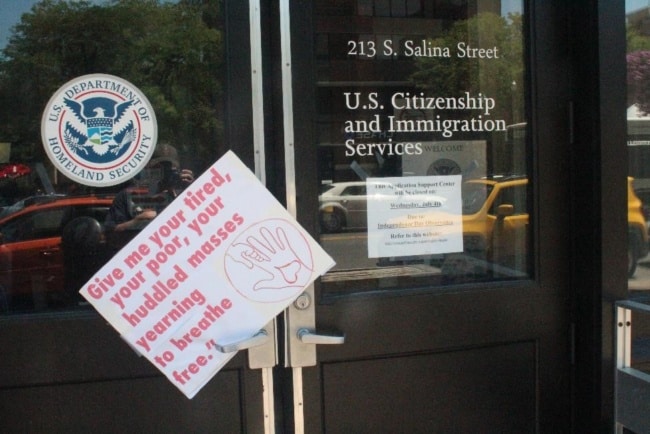 213 S. Salina Street
U.S. Citizenship
and Immigration
Services
U.S. DEPARTMENT OF
HOMELAND SECURITY
WELCOME
This Application Support Center
will be closed on:
Wednesday, July 4th
Due to:
Independence Day Observance
Refer to this website:
Give me your tired,
your poor, your
huddled masses
yearning
to breathe
free."